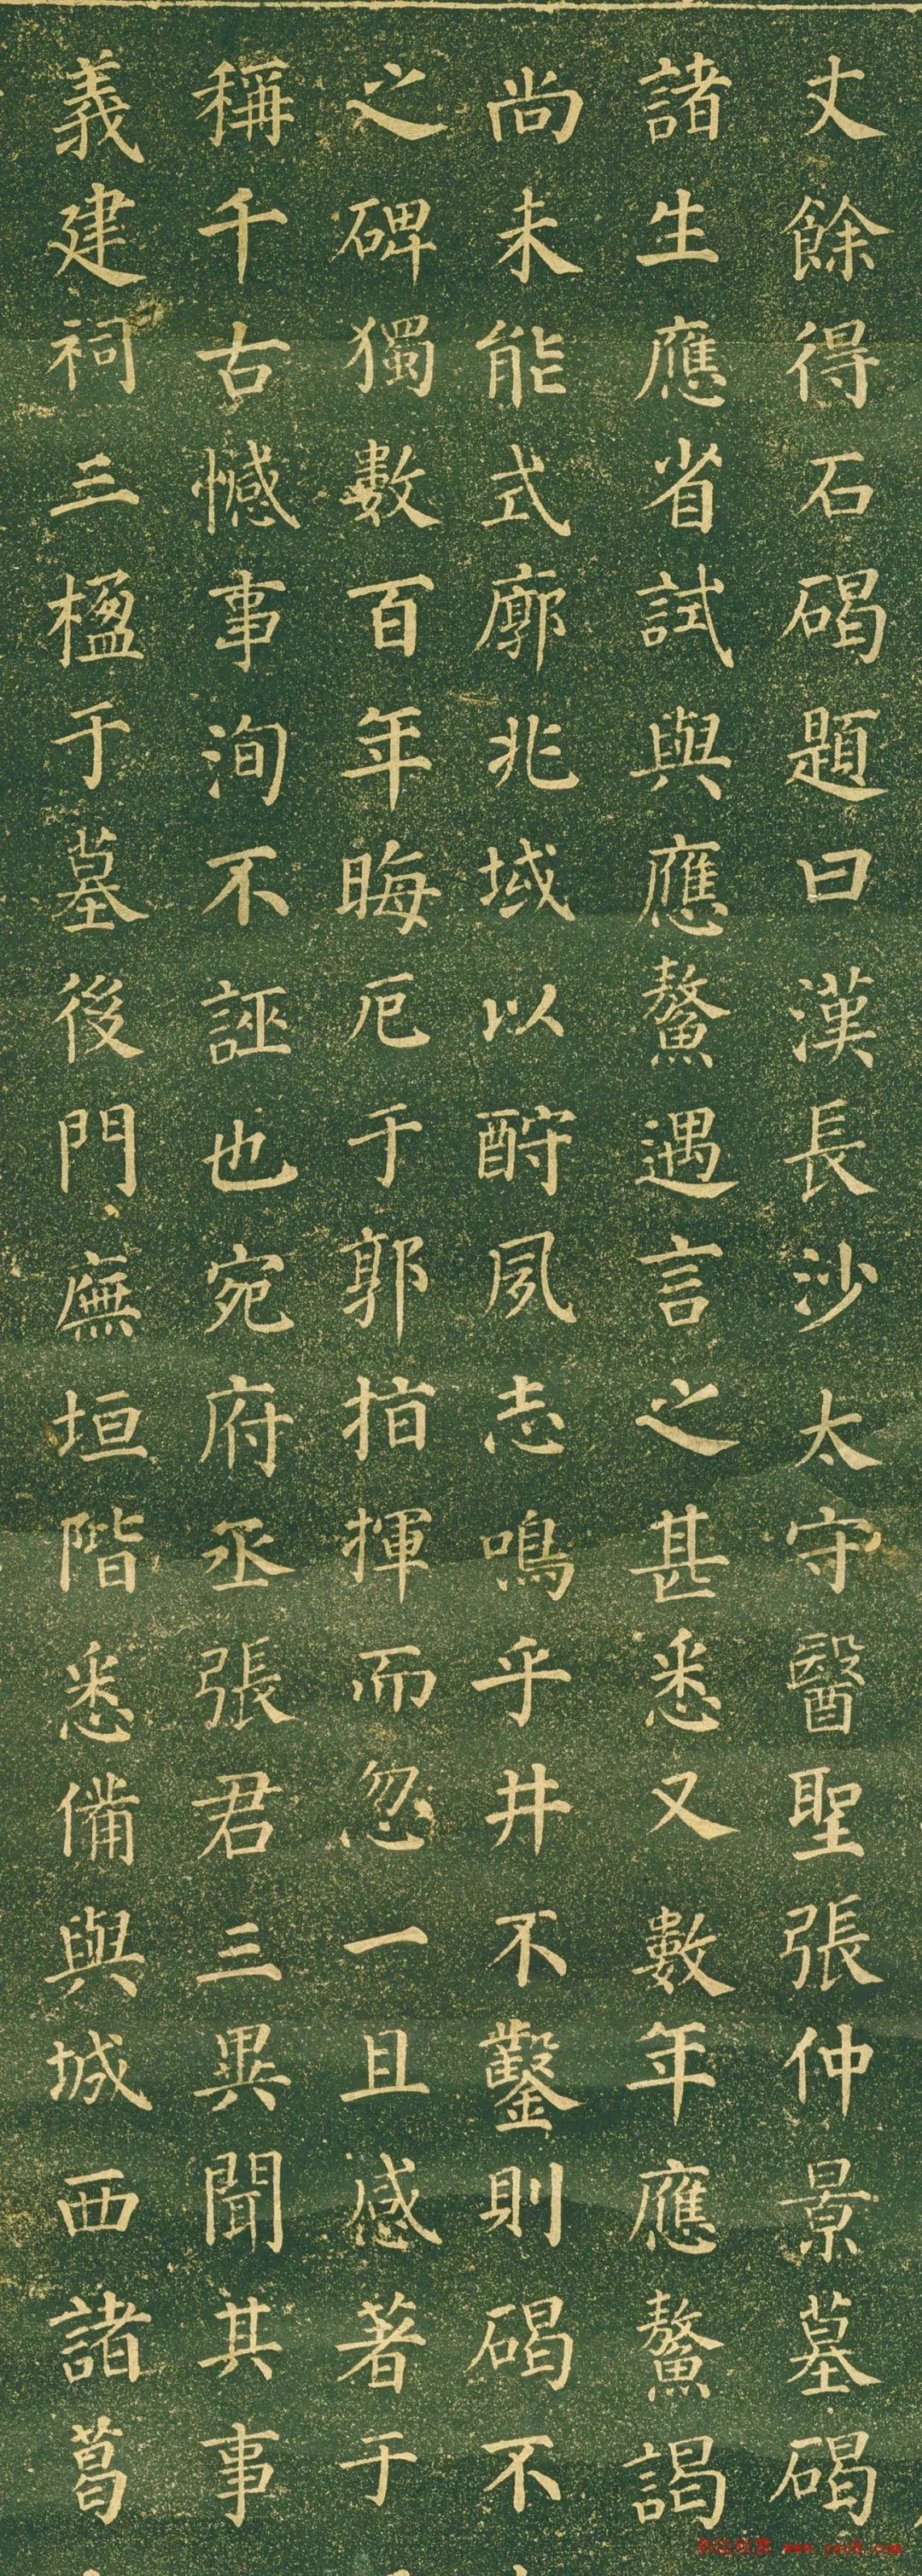 丈餘得石碣題曰漢長沙太守醫聖張仲景墓碣
諸生應省試與應鰲遇言之甚悉又數年應鰲謁
尚未能式廓兆域以酧夙志鳴乎井不鑿則碣不
之碑獨數百年晦厄于郭指揮而忽一且感著于
稱千古憾事洵不誣也宛府丞張君三異聞其事
義建祠三楹于墓後門廡垣階悉備與城西諸葛